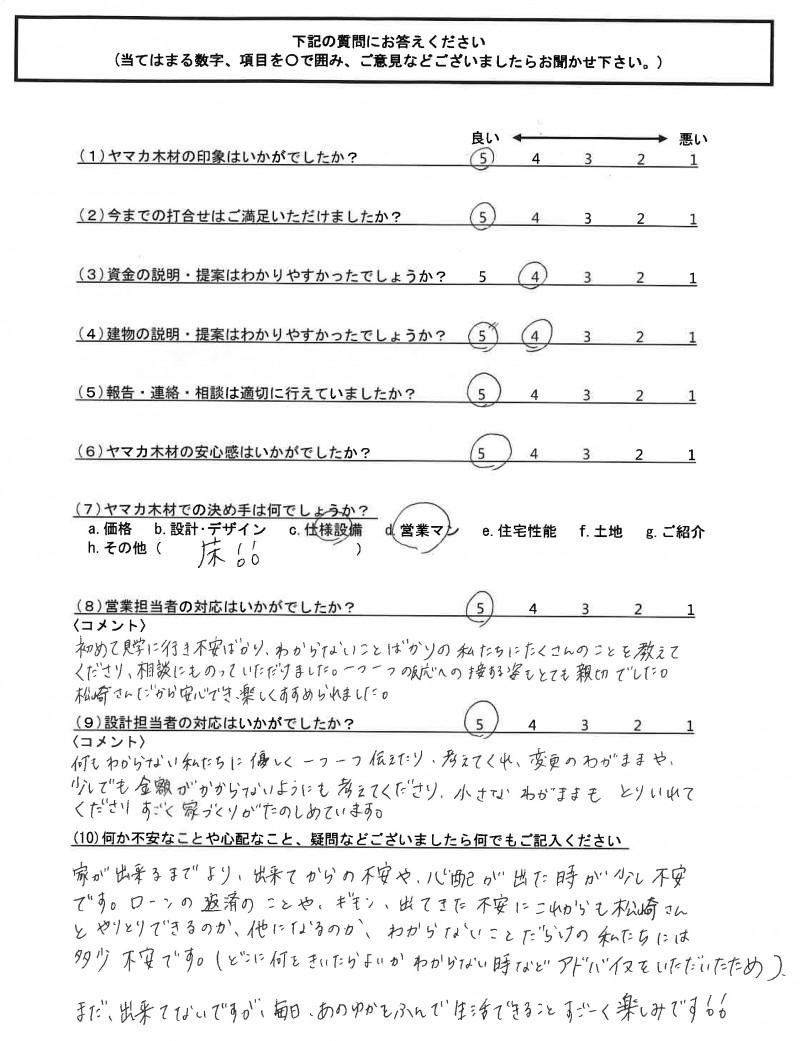 下記の質問にお答えください
(当てはまる数字、項目を〇で囲み、ご意見などございましたらお聞かせ下さい。)
良い 悪い
(1)ヤマカ木材の印象はいかがでしたか? 5 4 3 2 1
(2)今までの打合せはご満足いただけましたか? 5 4 3 2 1
(3)資金の説明・提案はわかりやすかったでしょうか? 5 4 3 2 1
(4)建物の説明・提案はわかりやすかったでしょうか? 5 4 3 2 1
(5)報告・連絡・相談は適切に行えていましたか? 5 4 3 2 1
(6)ヤマカ木材の安心感はいかがでしたか? 5 4 3 2 1
(7)ヤマカ木材での決め手は何でしょうか?
a.価格 b.設計・デザイン c.仕様設備 d.営業マン e.住宅性能 f.土地 g.ご紹介
h.その他( 床!! )
(8)営業担当者の対応はいかがでしたか? 5 4 3 2 1
〈コメント〉
初めて見学に行き不安ばかり、わからないことばかりの私たちにたくさんのことを教えて
くださり、相談にものっていただけました。一つ一つの反応への接する姿もとても親切でした。
松崎さんだから安心でき、楽しくすすめられました。
(9)設計担当者の対応はいかがでしたか? 5 4 3 2 1
〈コメント〉
何もわからない私たちに優しく一つ一つ伝えたり、考えてくれ、変更のわがままや、
少しでも金額がかからないようにも考えてくださり、小さなわがままもとりいれて
くださりすごく家づくりがたのしめています。
(10)何か不安なことや心配なこと、疑問などございましたら何でもご記入ください
家が出来るまでより、出来てからの不安や、心配が出た時が少し不安
です。ローンの返済のことや、ギモン、出てきた不安にこれからも松崎さん
とやりとりできるのか、他になるのか、わからないことだらけの私たちには
多少不安です。(どこに何をきいたらよいかわからない時などアドバイスをいただいたため)
まだ、出来てないですが、毎日、あのゆかをふんで生活できることすごーく楽しみです!!